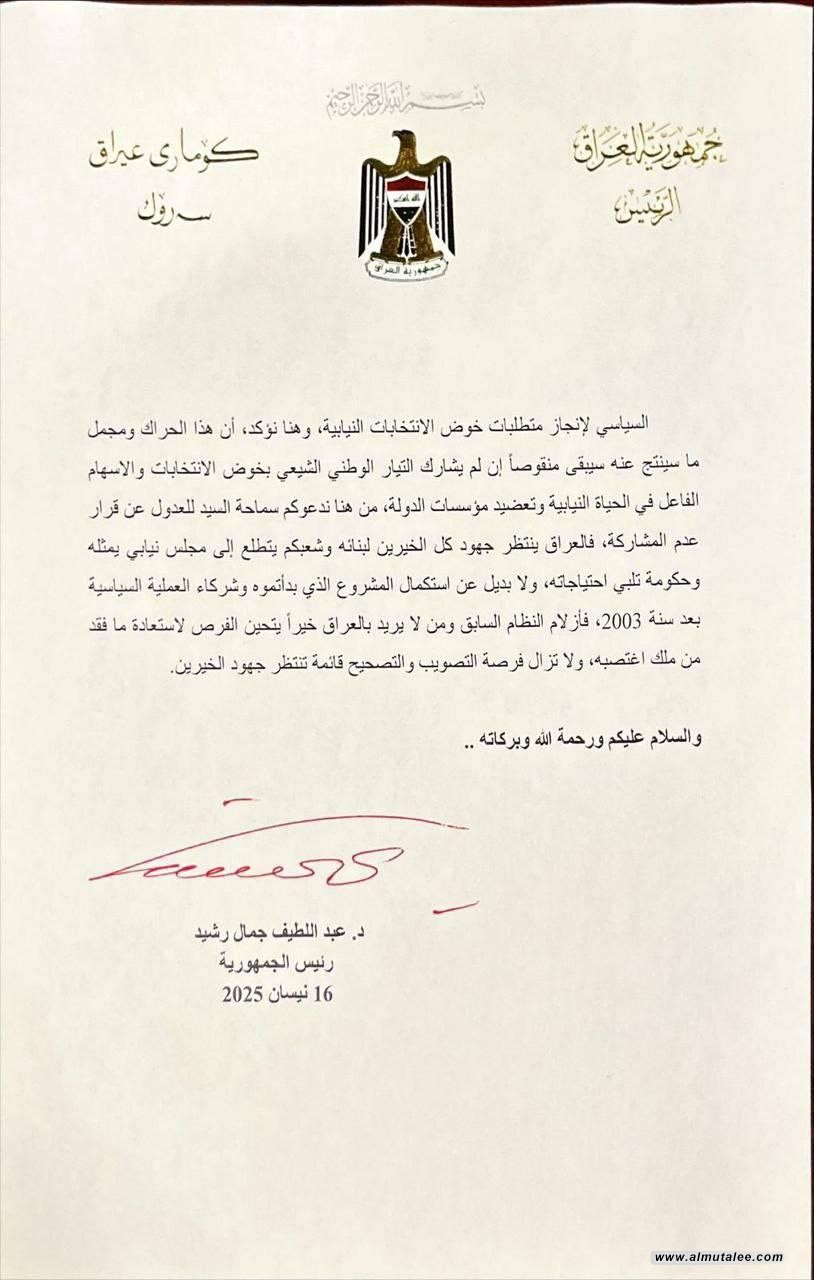 بسم الله الرحمن الرحيم
جمهورية العراق
الرئيس
كۆماری عێراق
سەرۆك
جمهورية العراق
السياسي لإنجاز متطلبات خوض الانتخابات النيابية، وهنا نؤكد، أن هذا الحراك ومجمل
ما سينتج عنه سيبقى منقوصاً إن لم يشارك التيار الوطني الشيعي بخوض الانتخابات والاسهام
الفاعل في الحياة النيابية وتعضيد مؤسسات الدولة، من هنا ندعوكم سماحة السيد للعدول عن قرار
عدم المشاركة، فالعراق ينتظر جهود كل الخيرين لبنائه وشعبكم يتطلع إلى مجلس نيابي يمثله
وحكومة تلبي احتياجاته، ولا بديل عن استكمال المشروع الذي بدأتموه وشركاء العملية السياسية
بعد سنة 2003، فأزلام النظام السابق ومن لا يريد بالعراق خيراً يتحين الفرص لاستعادة ما فقد
من ملك اغتصبه، ولا تزال فرصة التصويب والتصحيح قائمة تنتظر جهود الخيرين.
والسلام عليكم ورحمة الله وبركاته ..
د. عبد اللطيف جمال رشيد
رئيس الجمهورية
16 نيسان 2025
www.almutalee.com